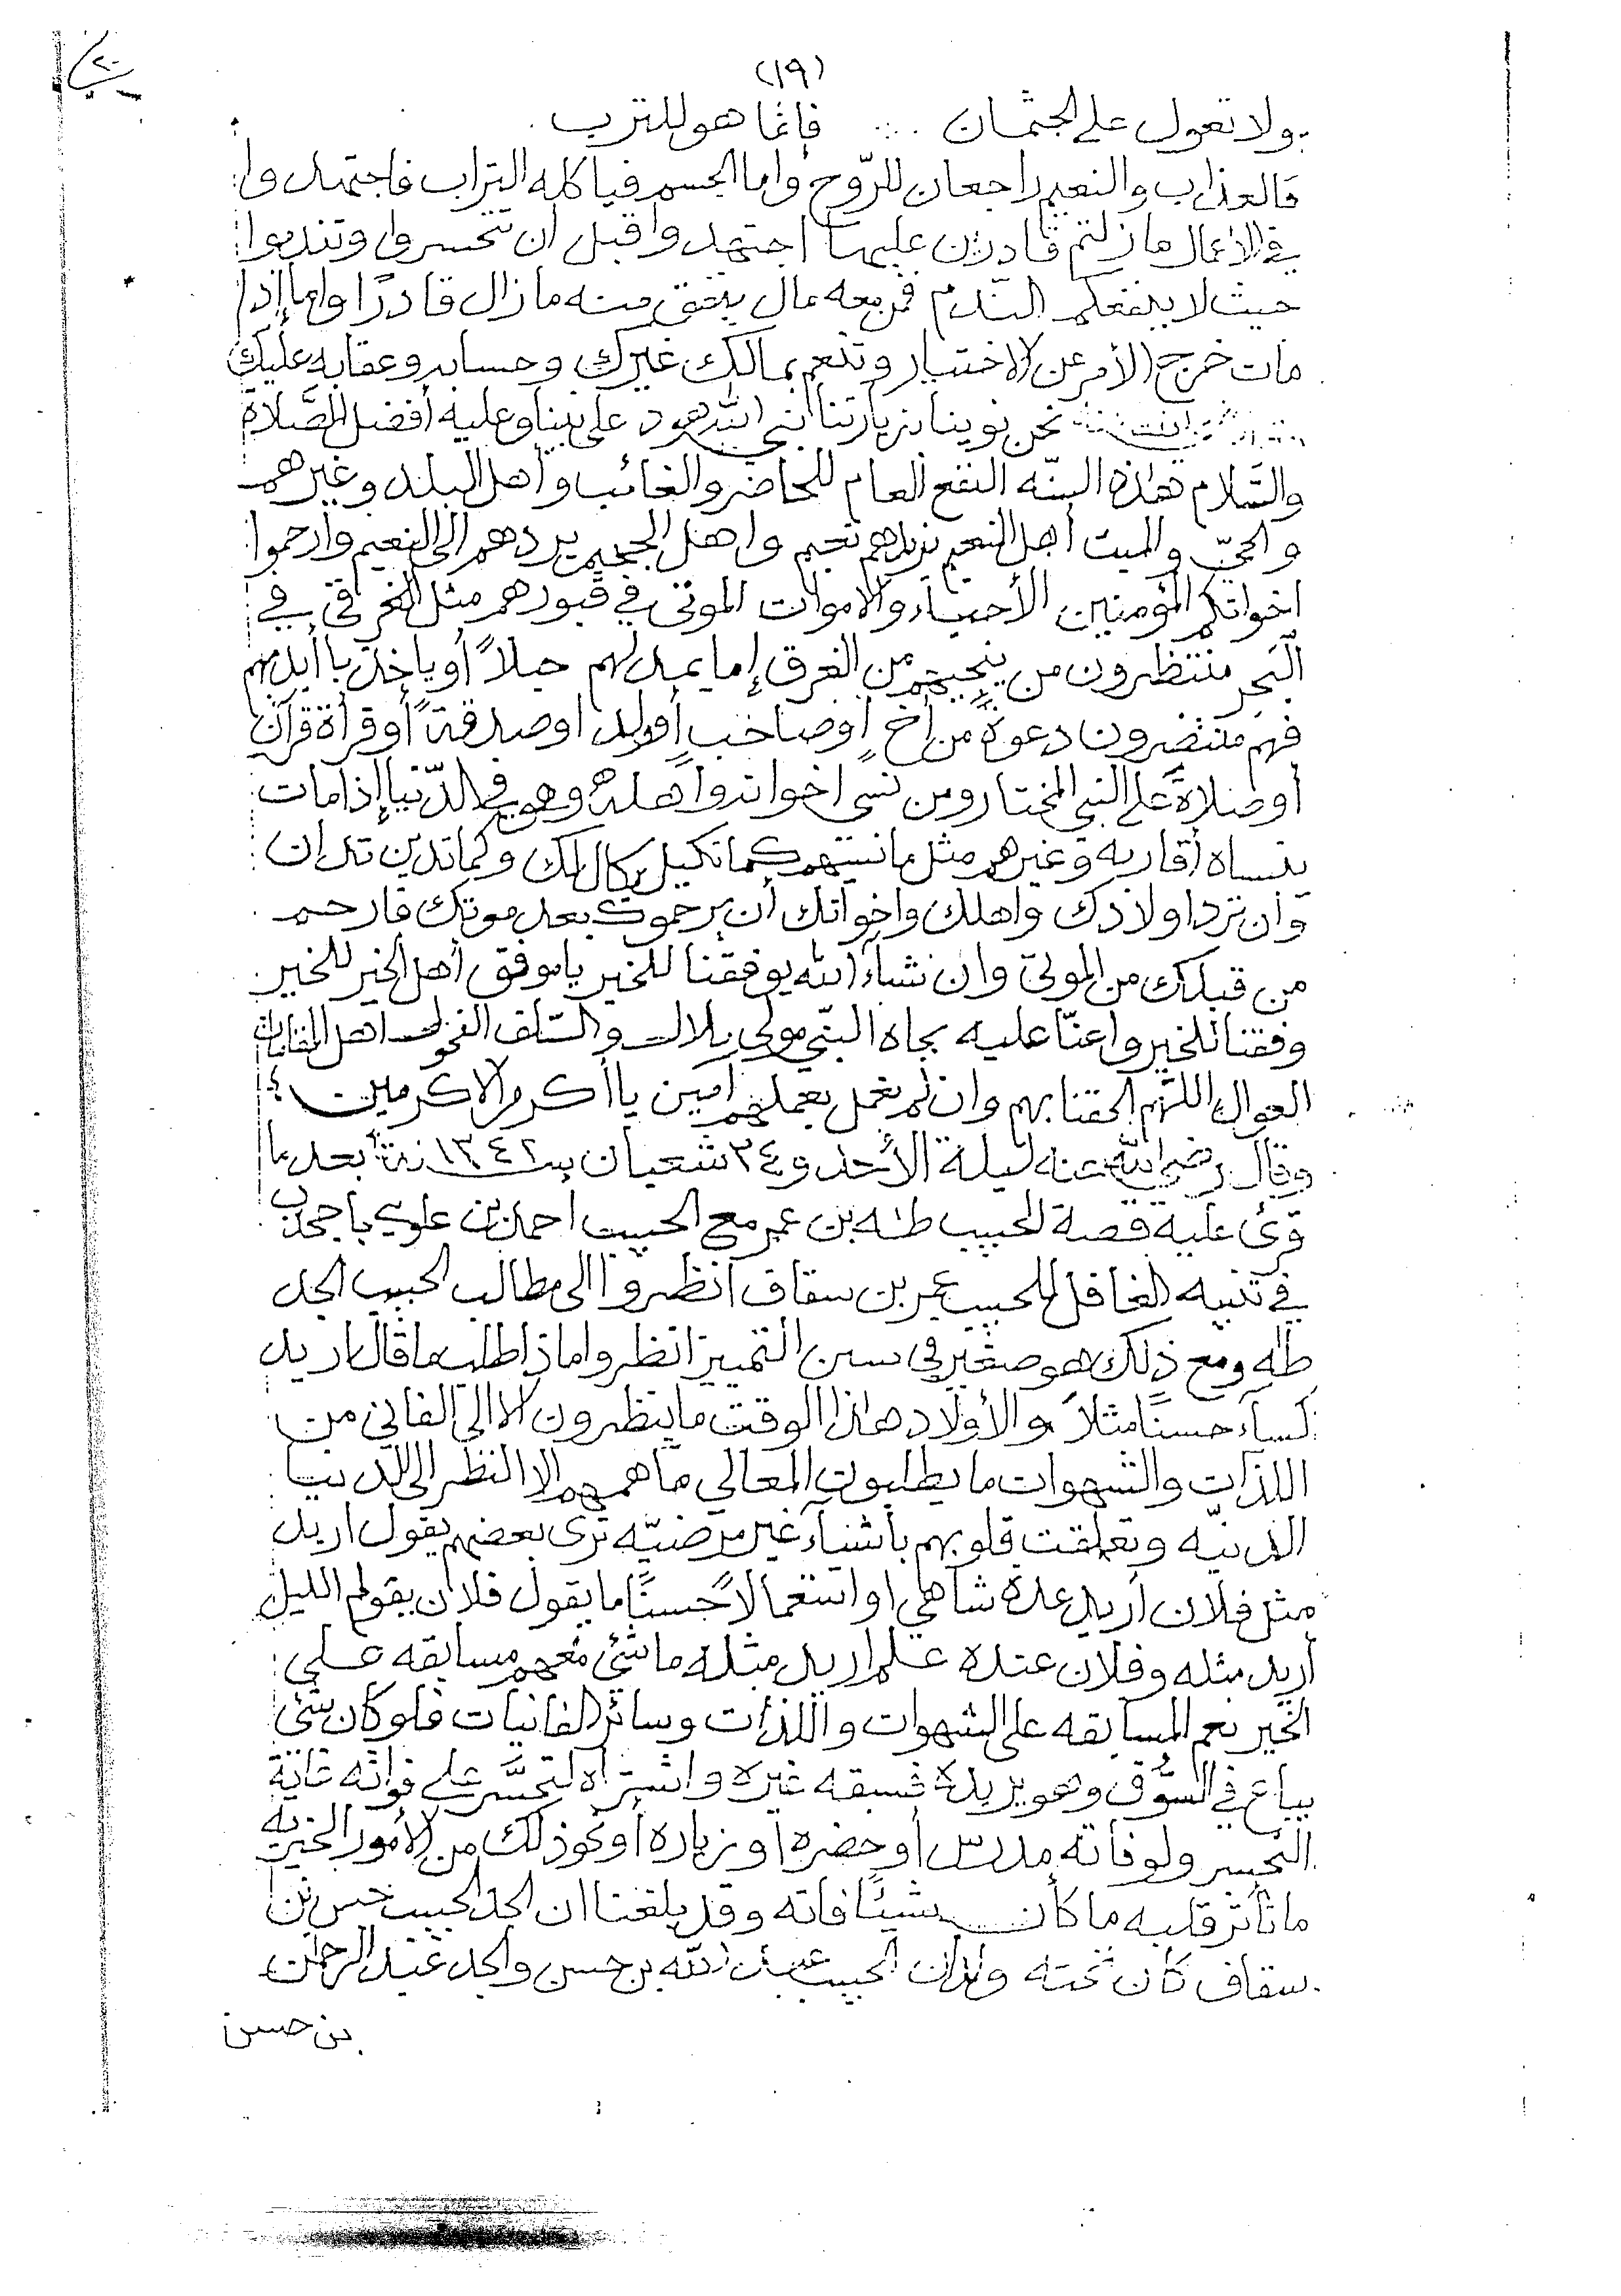 (١٩)
ولا تعول على الجثمان ∴ فإنما هو للترب
فالعذاب والنعيم راجعان للرّوح وأما الجسم فياكله التراب فاجتهدوا
في الأعمال ما زلتم قادرين عليها اجتهدوا قبل ان تتحسروا وتندموا
حيث لا ينفعكم النّدم فمن معه مال ينفق منه ما زال قادرًا واما إذا
مات خرج الأمر عن الاختيار وتنعم بمالك غيرك وحسابه وعقابه عليك
انت نحن نوينا بزيارتنا لنبي الله هود على نبينا وعليه أفضل الصَّلاة
والسَّلام هذه السنّه النفع العام للحاضر والغائب وأهل البلد وغيرهم
والحيّ والميت أهل النعيم يزيدهم نعيم واهل الجحيم يردهم الى النعيم وارحموا
اخوانكم المؤمنين الأحياء والاموات الموتى في قبورهم مثل الغرقى في
البحر منتظرون من ينجيهم من الغرق إما يمد لهم حبلاً أو ياخذ بأيديهم
فهم منتضرون دعوة من أخ أو صاحب أو ولد او صدقة أو قرأة قرآن
أو صلاة على النبي المختار ومن نسي اخوانه وأهله وهو في الدّنيا إذا مات
ينساه أقاربه وغيرهم مثل ما نسيتهم كما تكيل يكال لك وكما تدين تدان
وان ترد اولادك واهلك واخوانك أن يرحموك بعد موتك فارحم
من قبلك من الموتى وان شاء الله يوفقنا للخير يا موفق أهل الخير للخير
وفقنا للخير واعنّا عليه بجاه النبّي مولى بلال والسّلف الفحول اهل المقامات
العوال اللهم الحقنا بهم وان لم نعمل بعملهم آمين يا أكرم الاكرمين
وقال رضي الله عنه ليلة الأحد و٢٤ شعبان سنة ١٣٤٢ بعد ما
قرئ عليه قصة الحبيب طه بن عمر مع الحبيب احمد بن علوي باجحدب
في تنبيه الغافل للحبيب عمر بن سقاف انظروا الى مطالب الحبيب الجد
طه ومع ذلك هو صغير في سن التمييز انظروا ماذا طلب ما قال اريد
كساء حسنًا مثلاً والأولاد هذا الوقت ما ينظرون الا الى الفاني من
اللذات والشهوات ما يطلبون المعالي ما همهم الا النظر الى الدنيا
الدنيّه وتعلقت قلوبهم بأشياء غير مرضيّه ترى بعضهم يقول اريد
مثل فلان أريد عدة شاهي او استعمالاً حسنًا ما يقول فلان يقوم الليل
أريد مثله وفلان عنده علم اريد مثله ما شئ معهم مسابقه على
الخير نعم المسابقه على الشهوات واللذات وسائر الفانيات فلو كان شئ
يباع في السُّوق وهو يريده فسبقه غيره واشتراه لتحسَّر على فواته غاية
التحسر ولو فاته مدرس أو حضره او زياره أو نحو ذلك من الأمور الخيريه
ما تأثر قلبه ما كأن شيئًا فاته وقد بلغنا ان الجد الحبيب حسن بن
سقاف كان تحته ولدان الحبيب عبد الله بن حسن والجد عبد الرحمن
بن حسن